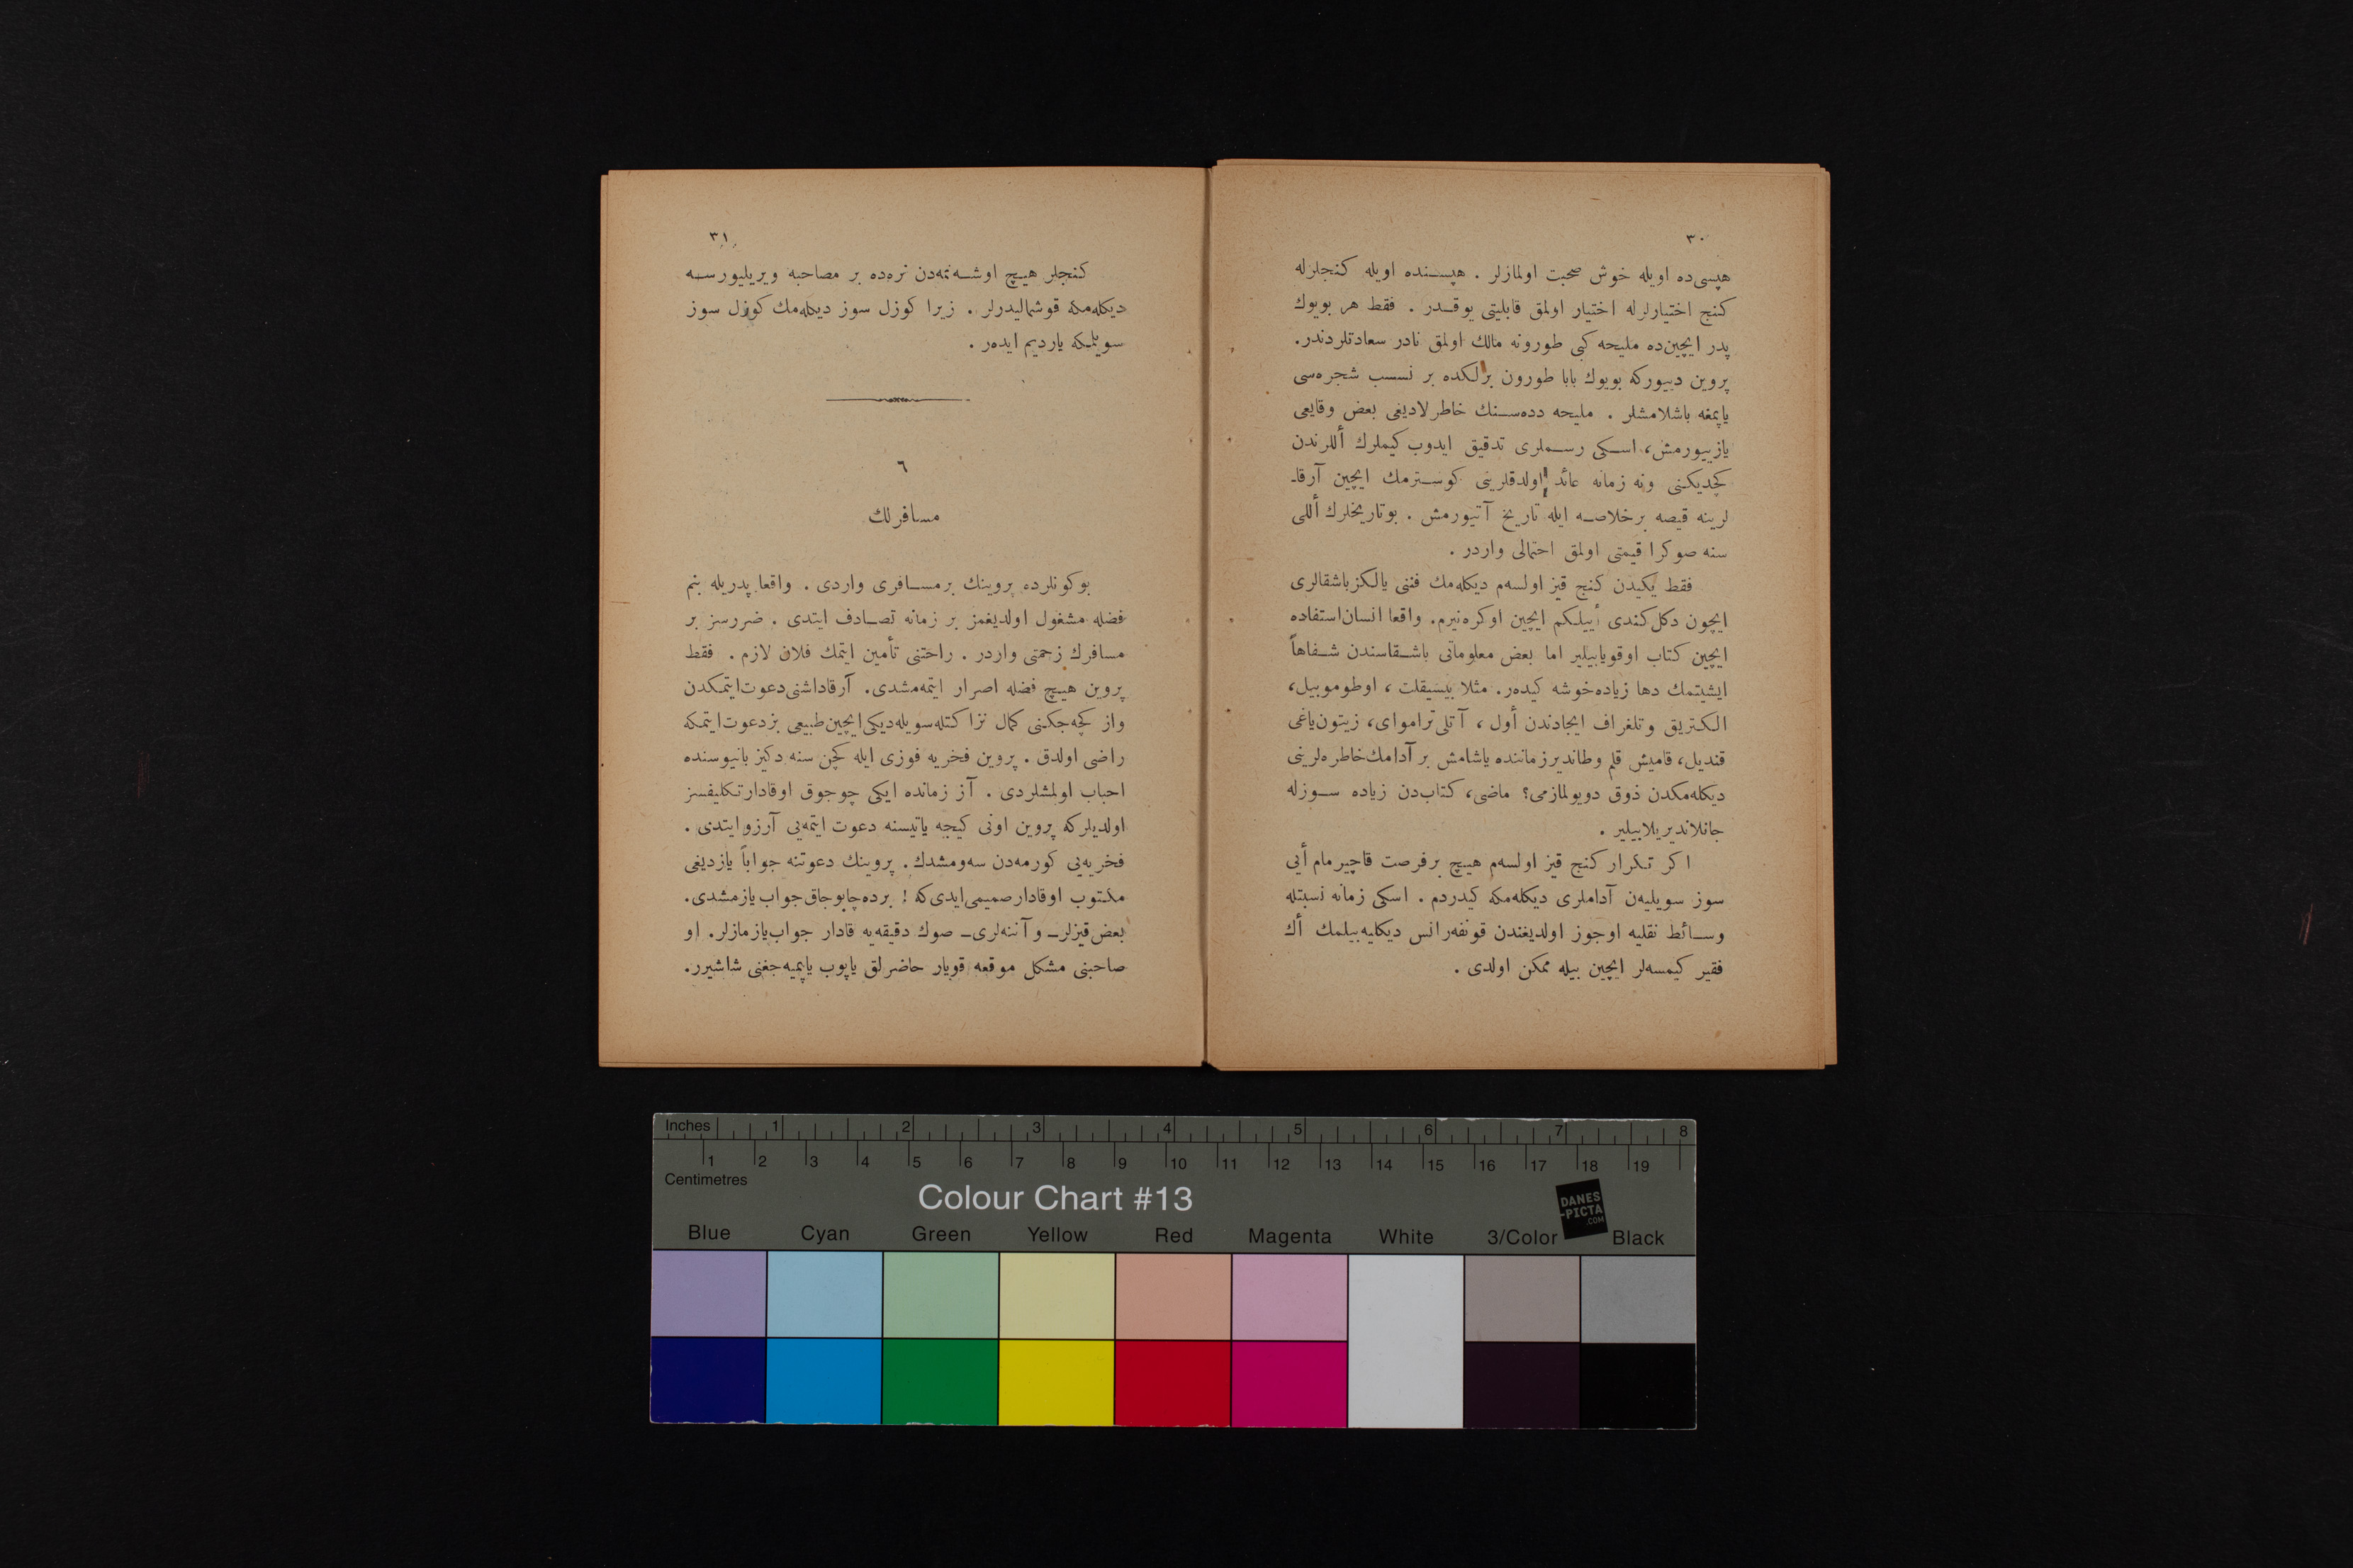 ٣٠
هپسی‌ده اویله خوش صحبت اولمازلر . هپسـنده اویله کنجلرله
کنج اختیارلرله اختیار اولمق قابلیتی یوقـدر . فقط هر بویوك
پدر ایچین‌ده ملیحه کبی طورونه مالك اولمق نادر سعادتلردندر.
پروین دییورکه بویوك بابا طورون برلکده بر نسب شجره‌سی
یاپمغه باشلامشلر . ملیحه دده‌سـنك خاطرلادیغی بعض وقایعی
یازییورمش، اسـکی رسـملری تدقیق ایدوب کیملرك أللرندن
کچدیکنی ونه زمانه عائد اولدقلرینی کوسـترمك ایچین آرقا۔
لرینه قیصه برخلاصه ایله تاریخ آتیورمش . بوتاریخلرك أللی
سنه صوکرا قیمتی اولمق احتمالی واردر .
فقط یکیدن کنج قیز اولسه‌م دیکله‌مك فننی یالکز باشقالری
ایچون دکل کندی أییلکم ایچین اوکره‌نیرم. واقعا انسان استفاده
ایچین کتاب اوقویابیلیر اما بعض معلوماتی باشـقاسندن شـفاهاً
ایشیتمك دها زیاده خوشه کیده‌ر. مثلا بیسیقلت ، اوطوموبیل،
الکتریق وتلغراف ایجادندن أول ، آتلی تراموای، زیتون یاغی
قندیل، قامیش قلم وطاندیر زماننده یاشامش بر آدامك خاطره‌لرینی
دیکله‌مکدن ذوق دویولمازمی؟ ماضی، کتاب‌دن زیاده سـوزله
جانلاندیریلابیلیر .
اکر تکرار کنج قیز اولسه‌م هیـچ برفرصت قاچیرمام أیی
سوز سویلیه‌ن آداملری دیکله‌مکه کیدردم . اسکی زمانه نسبتله
وسـائط نقلیه اوجوز اولدیغندن قونفه‌رانس دیکلیه‌بیلمك أك
فقیر کیمسه‌لر ایچین بیله ممکن اولدی .
٣١
کنجلر هیـچ اوشـه‌نمه‌دن نره‌ده بر مصاحبه ویریلیورسـه
دیکله‌مکه قوشمالیدرلر . زیرا کوزل سوز دیکله‌مك کوزل سوز
سویلمکه یاردیم ایده‌ر .
٦
مسافرلك
بوکونلرده پروینك برمسـافری واردی . واقعا پدریله بنم
فضله مشغول اولدیغمز بر زمانه تصـادف ایتدی . ضررسز بر
مسافرك زحمتی واردر . راحتنی تأمین ایتمك فلان لازم . فقط
پروین هیـچ فضله اصرار ایتمه‌مشدی. آرقاداشنی دعوت ایتمکدن
واز کچه‌جکنی کمال نزاکتله سویله‌دیکی ایچین طبیعی بز دعوت ایتمکه
راضی اولدق . پروین فخریه فوزی ایله کچن سنه دکیز بانیوسنده
احباب اولمشلردی . آز زمانده ایکی چوجوق اوقادار تکلیفسز
اولدیلرکه پروین اونی کیجه یاتیسنه دعوت ایتمه‌یی آرزو ایتدی .
فخریه‌یی کورمه‌دن سه‌ومشدك. پروینك دعوتنه جواباً یازدیغی
مکتوب اوقادار صمیمی ایدی‌که ! برده چابوجاق جواب یازمشدی.
بعض قیزلر ـ وآننه‌لری ـ صوك دقیقه‌یه قادار جواب یازمازلر. او
صاحبنی مشکل موقعه قویار حاضرلق یاپوب یاپمیه‌جغنی شاشیرر.
Inches 1 2 3 4 5 6 7 8
1 2 3 4 5 6 7 8 9 10 11 12 13 14 15 16 17 18 19
Centimetres
Colour Chart #13
DANES
-PICTA
.COM
Blue Cyan Green Yellow Red Magenta White 3/Color Black